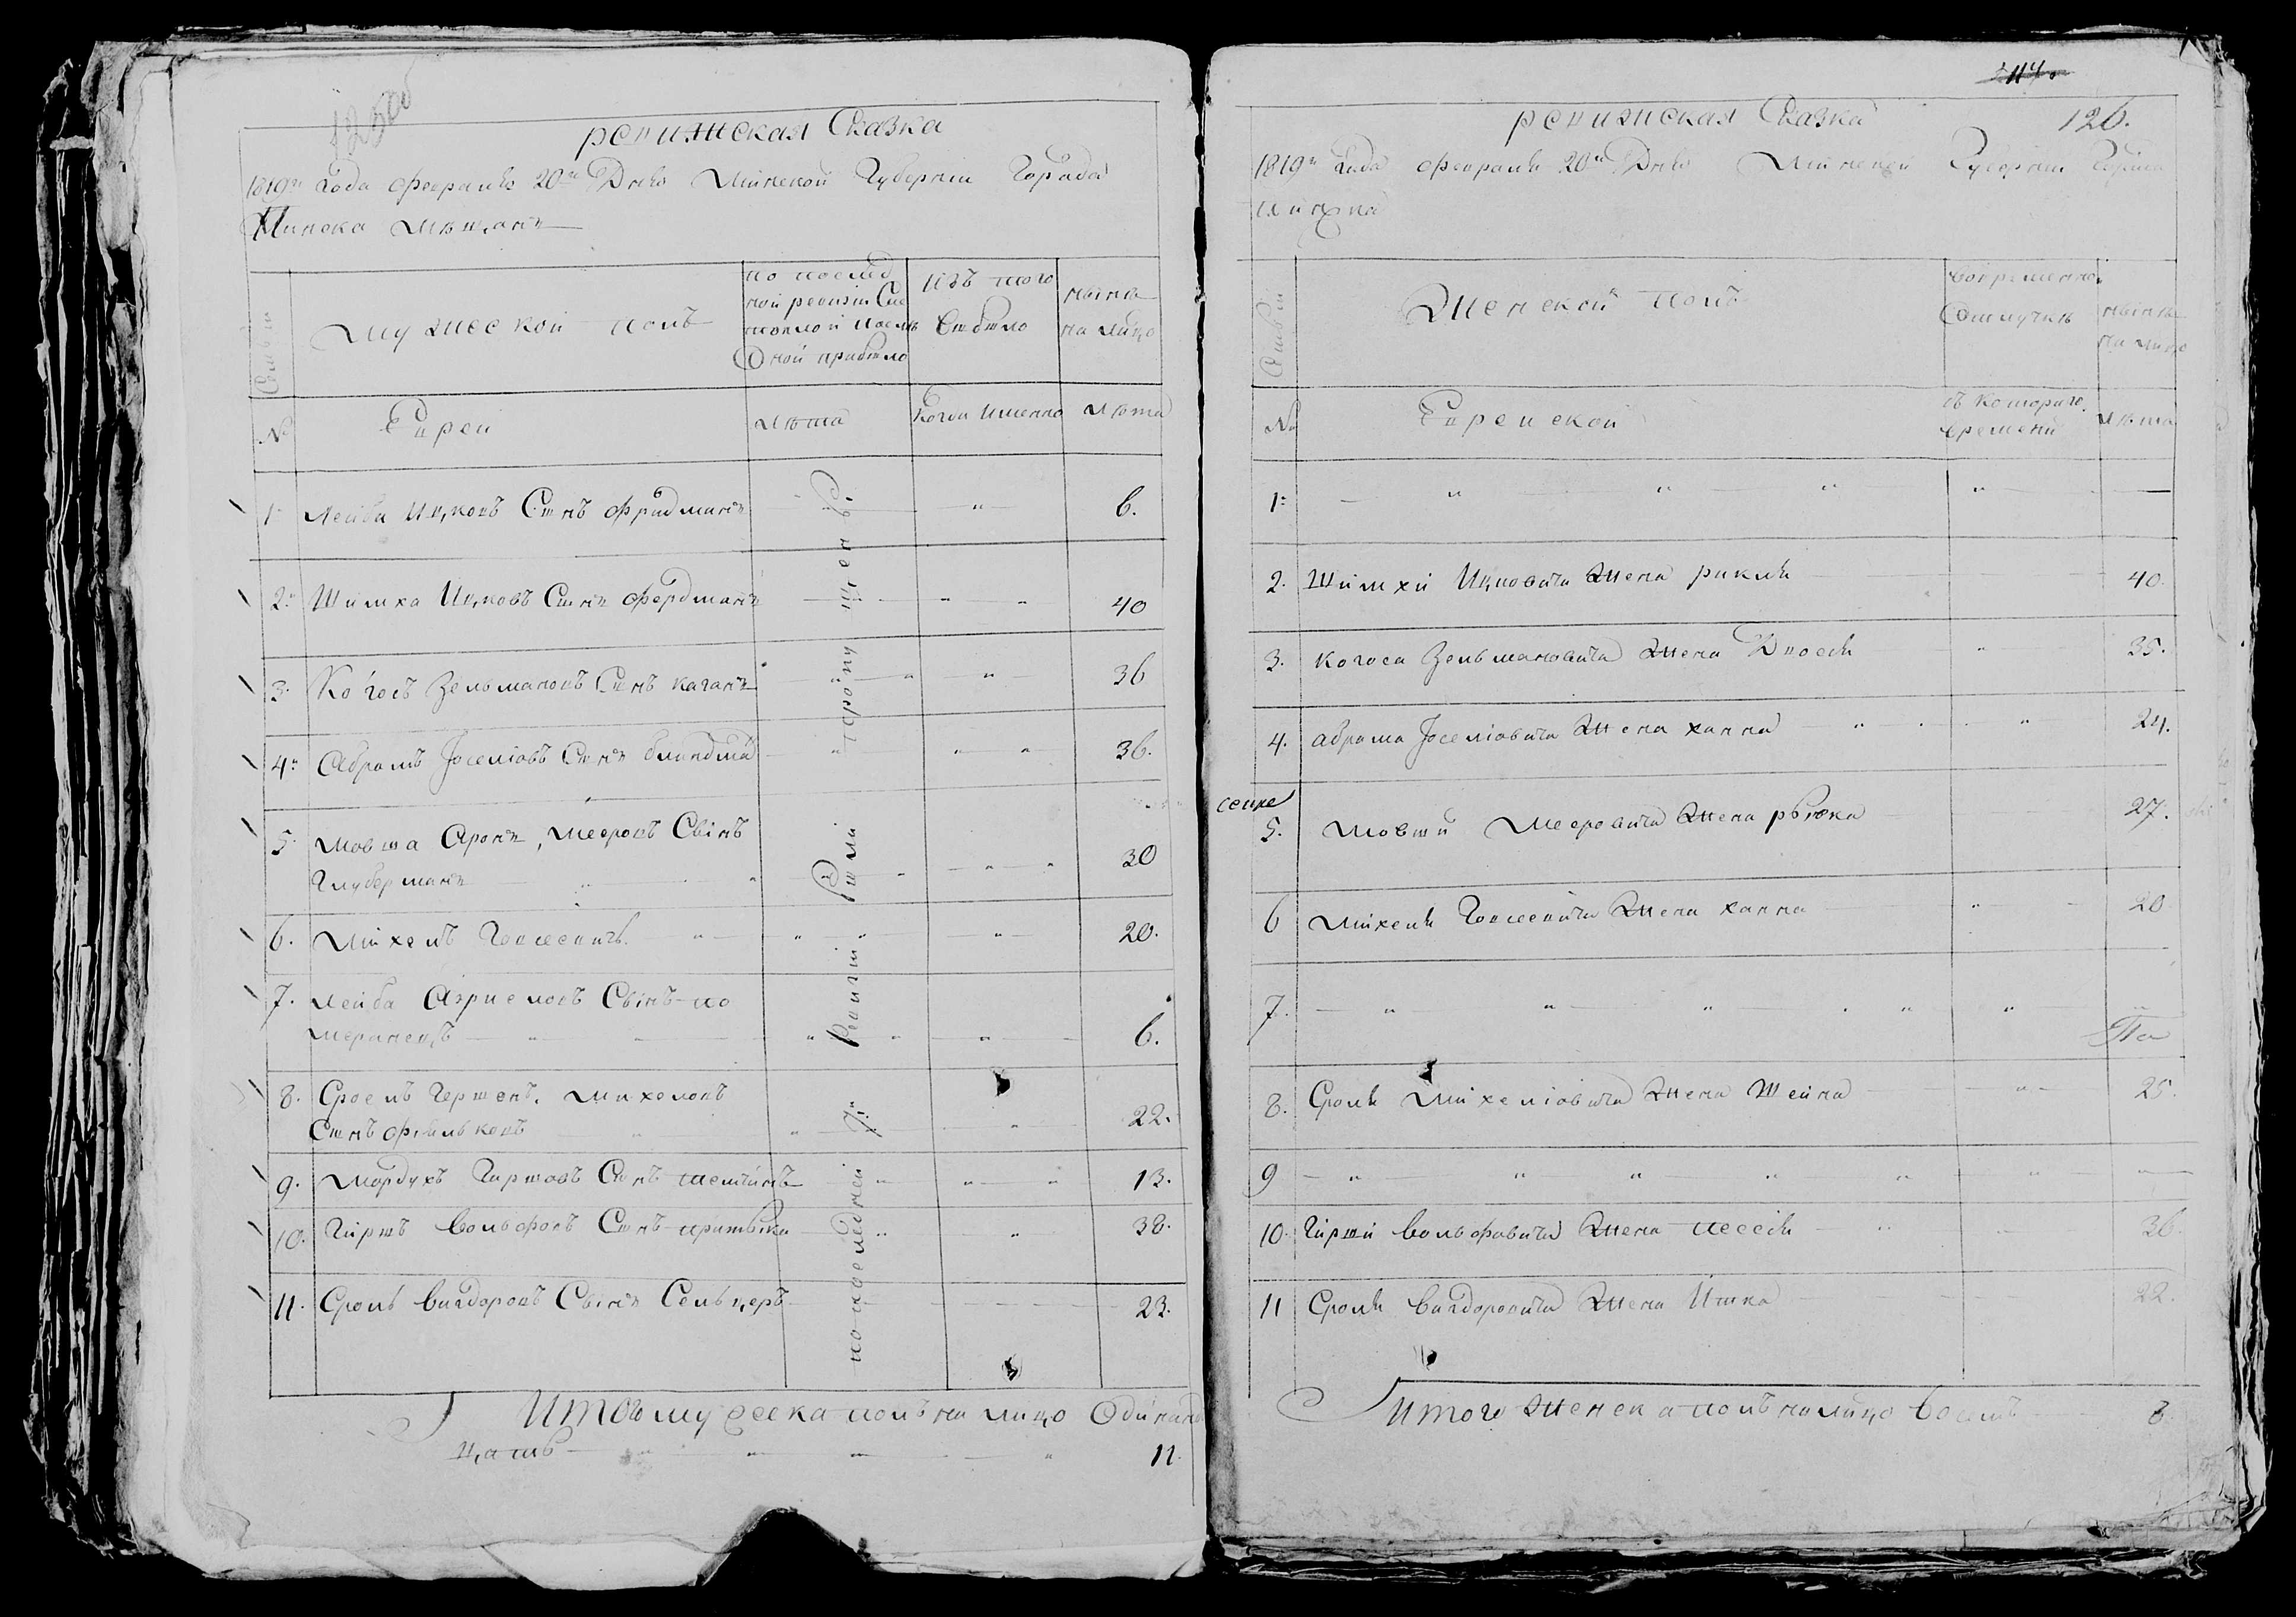 125об
ревижская Сказка
1819го Года февраля 20го Дня Минской Губернiи Города
Минска мѣщанъ
Семьи
мужеской полъ
по послѣд
ной ревизiи Сос
тояло и послѣ
Оной прибыло
Изъ того
выбыло
нынѣ
на лицо
№
Евреи
лѣта
когда именно
лѣта
по последней 7й Ревизiи были пропущены
1. Лейба Ицковъ Сынъ фридманъ 6.
2. Шимха Ицковъ Сынъ фердманъ 40
3. Когосъ Зельмановъ Сынъ каганъ 36
4. Абрамъ Iоселiовъ Сынъ 36.
5. Мовша Аронъ, Мееровъ Свiнъ 30
Глуберманъ
6. Михель Говсеевичъ 20.
7. Лейба Азриеловъ Свiнъ по
меранецъ 6.
8. Сроель Гершенъ. михеловъ
Сынъ фильковъ 22.
9. Мордухъ Гиршовъ Сынъ 13.
10. Гиршъ вольфовъ Сынъ притыка 38.
11. Сроль вигдоровъ Свiнъ Сельцеръ 23.
Итого мужеска полъ на лицо Одинад
цать 11.
114.
126.
ревижская Сказка
1819го Года февраля 20го Дня Минской Губернiи Города
Минска
Семьи
Женской полъ
во временно
Отлучкѣ
нынѣ
на лицо
№
Еврейской
съ котораго
времени
лѣта
1.
2. Шимхи Ицковича Жена рикля 40.
3. Когоса Зельмановича Жена Двося 35.
4. абрама Iоселiовича Жена ханна 24.
5. Мовши Мееровича Жена рывка 27.
6 Михеля Говсеевича Жена ханна 20
7.
8. Сроля Михелiовича Жена Шейна 25.
9
10. Гирши вольфовича Жена песся 36.
11 Сроля вигдоровича Жена Итка 22.
Итого женска полъ на лицо восемъ 8.